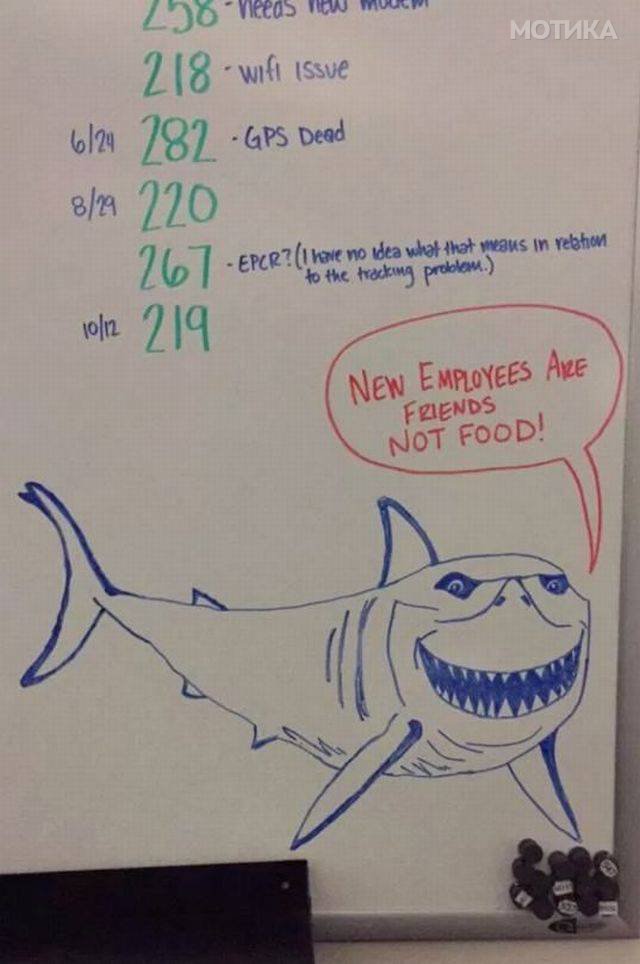 МОТИКА
258 - needs new modem
218 - wifi issue
6/24 282 - GPS Dead
8/29 220
267 - EPCR? (I have no idea what that means in relation
to the tracking problem.)
10/12 219
NEW EMPLOYEES ARE
FRIENDS
NOT FOOD!